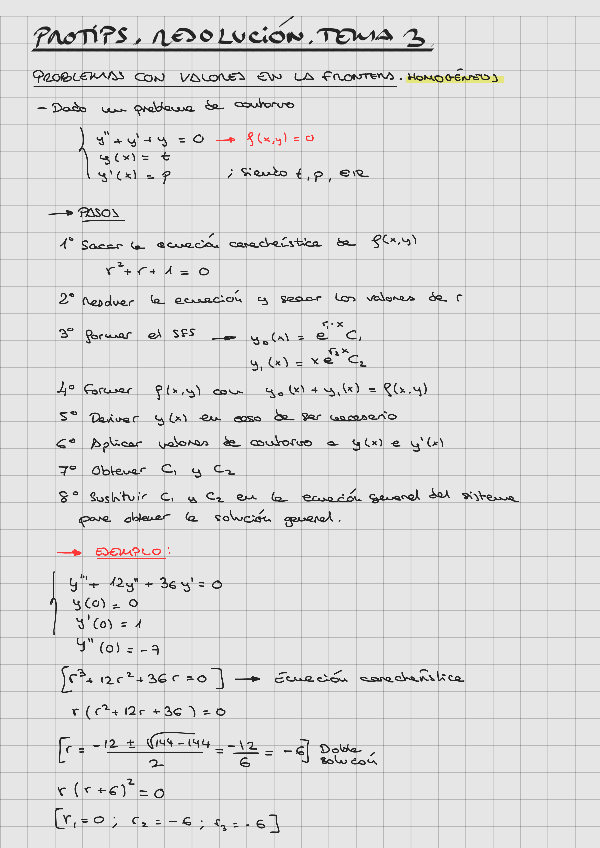 PROTIPS. RESOLUCIÓN. TEMA 3
PROBLEMAS CON VALORES EN LA FRONTERA. HOMOGÉNEOS
- Dado un problema de contorno
y'' + y' + y = 0 → f(x,y) = 0
y(x) = t
y'(x) = p ; siento t, p, ∈ℝ
→ PASOS
1º Sacar la ecuación característica de f(x,y)
r² + r + 1 = 0
2º Resolver la ecuación y sacar los valores de r
3º Formar el SFS → y₀(x) = e^(r₁·x) C₁
y₁(x) = x e^(r₂x) C₂
4º Formar f(x,y) con y₀(x) + y₁(x) = f(x,y)
5º Derivar y(x) en caso de ser necesario
6º Aplicar valores de contorno a y(x) e y'(x)
7º Obtener C₁ y C₂
8º Sustituir C₁ y C₂ en la ecuación general del sistema
para obtener la solución general.
→ EJEMPLO:
y''' + 12y'' + 36y' = 0
y(0) = 0
y'(0) = 1
y''(0) = -7
[r³ + 12r² + 36r = 0] → Ecuación característica
r(r² + 12r + 36) = 0
[r = (-12 ± √(144-144))/2 = -12/6 = -6] Doble solución
r(r+6)² = 0
[r₁ = 0 ; r₂ = -6 ; r₃ = -6]